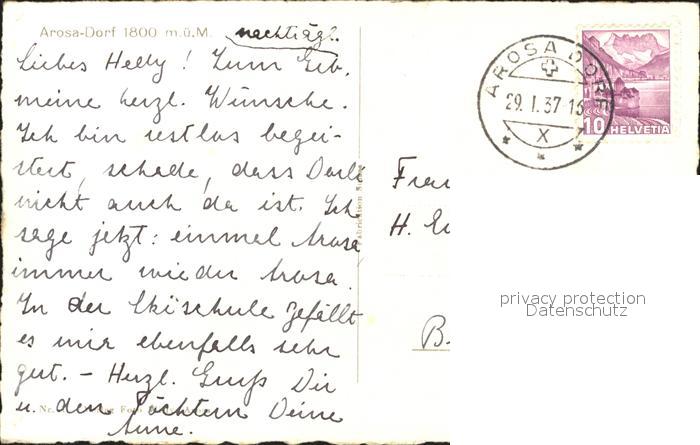 Arosa-Dorf 1800 m.ü.M.
nachträgl.
Liebes Helly! Zum Geb.
meine herzl. Wünsche.
Ich bin restlos begei-
stert, schade, dass
nicht auch da ist. Ich
sage jetzt: einmal Arosa
immer wieder Arosa.
In der Skischule gefällt
es mir ebenfalls sehr
gut. – Herzl. Gruß Dir
u. den Töchtern Deine
Anne.
AROSA DORF
29. I. 37
X
10 HELVETIA
Frau
H.
B.
privacy protection
Datenschutz